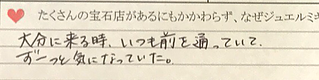 たくさんの宝石店があるにもかかわらず、なぜジュエルミキ
大分に来る時、いつも前を通っていて、
ずーっと気になっていた。